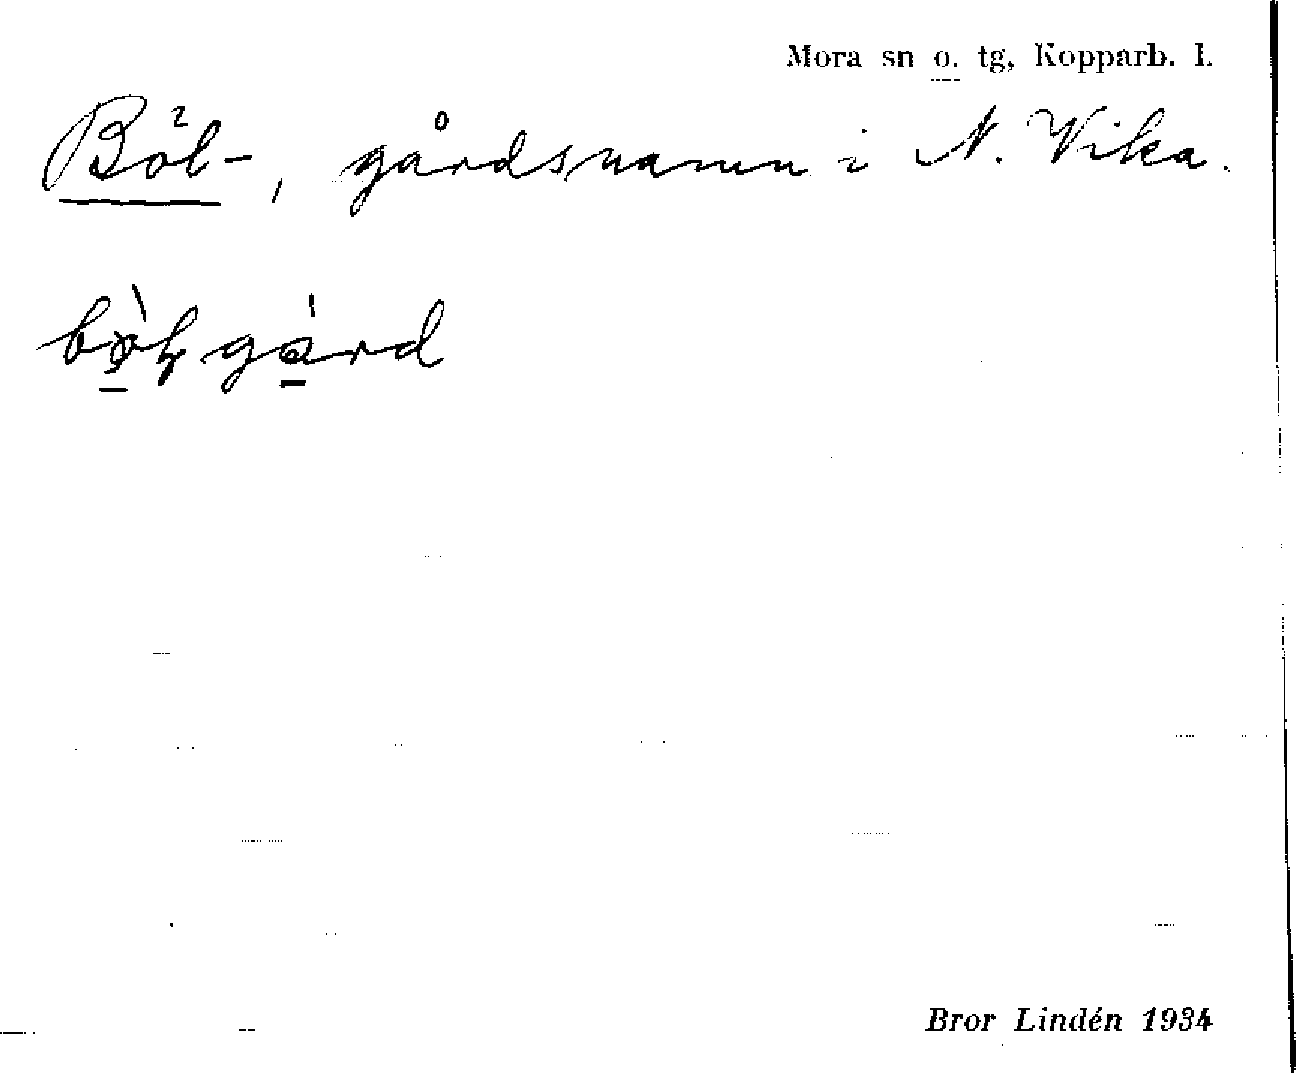 Mora sn o. tg, Kopparb. l.
Böl-, gårdsnamn i N. Vika.
gård
Bror Lindén 1934